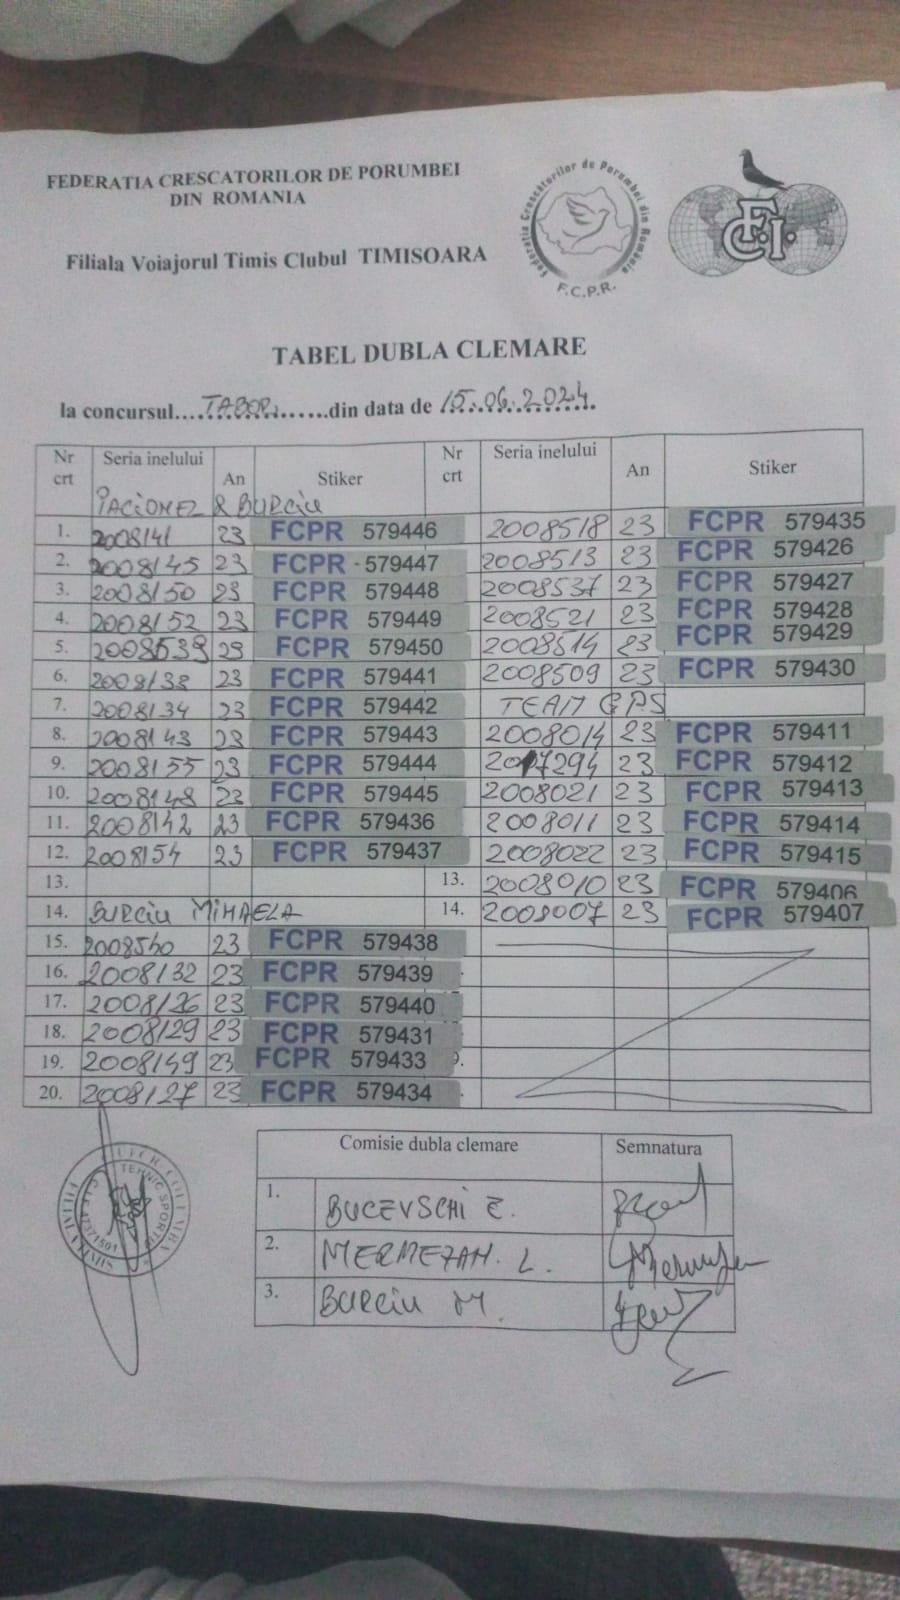 FEDERATIA CRESCATORILOR DE PORUMBEI
DIN ROMANIA
Filiala Voiajorul Timis Clubul TIMISOARA
Federatia Crescatorilor de Porumbei din România
F.C.P.R.
F.C.I.
TABEL DUBLA CLEMARE
la concursul....TABOR.......din data de 15.06.2024
Nr crt Seria inelului An Stiker Nr crt Seria inelului An Stiker
PACIONEL & BURCIU
1. 2008141 23 FCPR 579446 2008518 23 FCPR 579435
2. 2008145 23 FCPR 579447 2008513 23 FCPR 579426
3. 2008150 23 FCPR 579448 2008537 23 FCPR 579427
4. 2008152 23 FCPR 579449 2008521 23 FCPR 579428
5. 2008539 23 FCPR 579450 2008514 23 FCPR 579429
6. 2008138 23 FCPR 579441 2008509 23 FCPR 579430
7. 2008134 23 FCPR 579442 TEAM GPS
8. 2008143 23 FCPR 579443 2008014 23 FCPR 579411
9. 2008155 23 FCPR 579444 2017294 23 FCPR 579412
10. 2008148 23 FCPR 579445 2008021 23 FCPR 579413
11. 2008142 23 FCPR 579436 2008011 23 FCPR 579414
12. 2008154 23 FCPR 579437 2008022 23 FCPR 579415
13. 13. 2008010 23 FCPR 579406
14. BURCIU MIHAELA 14. 2008007 23 FCPR 579407
15. 2008540 23 FCPR 579438
16. 2008132 23 FCPR 579439
17. 2008126 23 FCPR 579440
18. 2008129 23 FCPR 579431
19. 2008149 23 FCPR 579433 9.
20. 2008127 23 FCPR 579434
Comisie dubla clemare Semnatura
1. BUCEVSCHI E.
2. MERMEZAN. L.
3. BURCIU M.